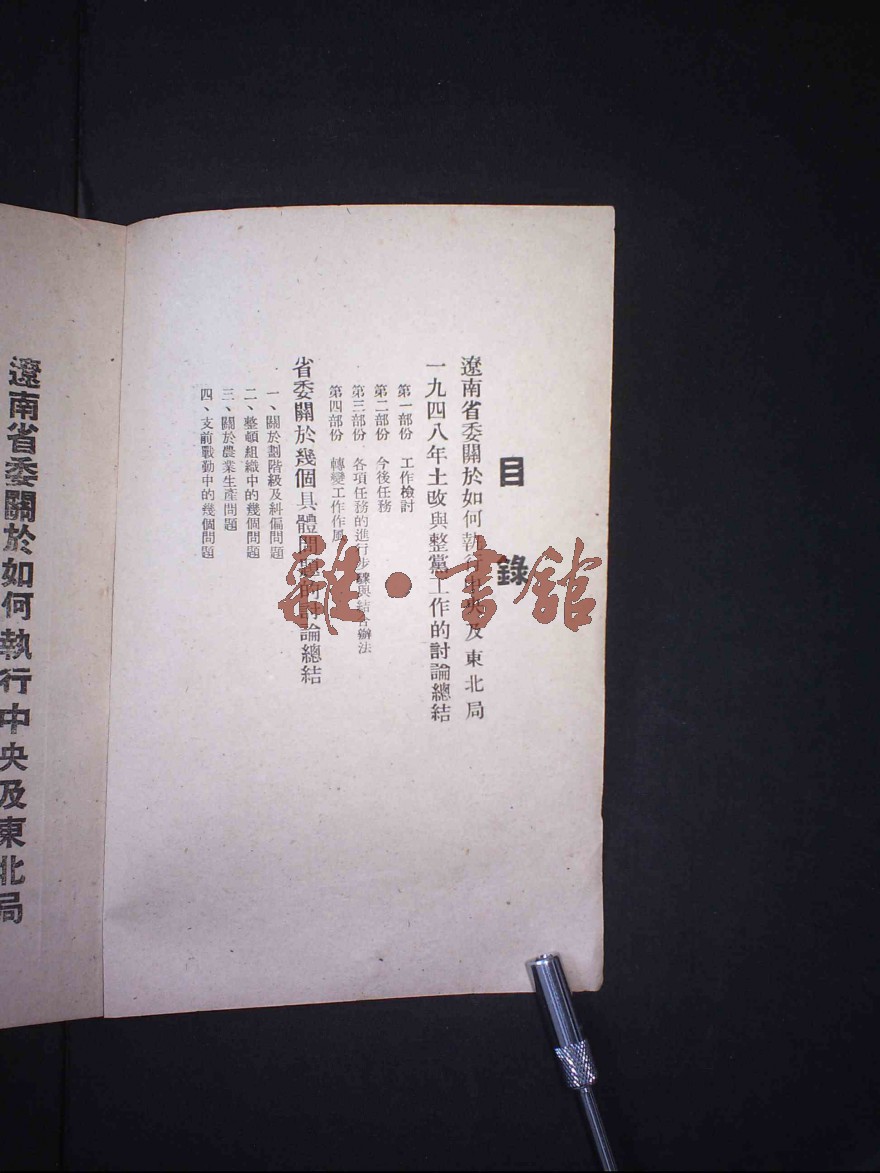 目錄
遼南省委關於如何執行中央及東北局
一九四八年土改與整黨工作的討論總結
第一部份 工作檢討
第二部份 今後任務
第三部份 各項任務的進行步驟與結合辦法
第四部份 轉變工作作風
省委關於幾個具體問題的討論總結
一、關於劃階級及糾偏問題
二、整頓組織中的幾個問題
三、關於農業生產問題
四、支前戰勤中的幾個問題
遼南省委關於如何執行中央及東北局
雜·書館